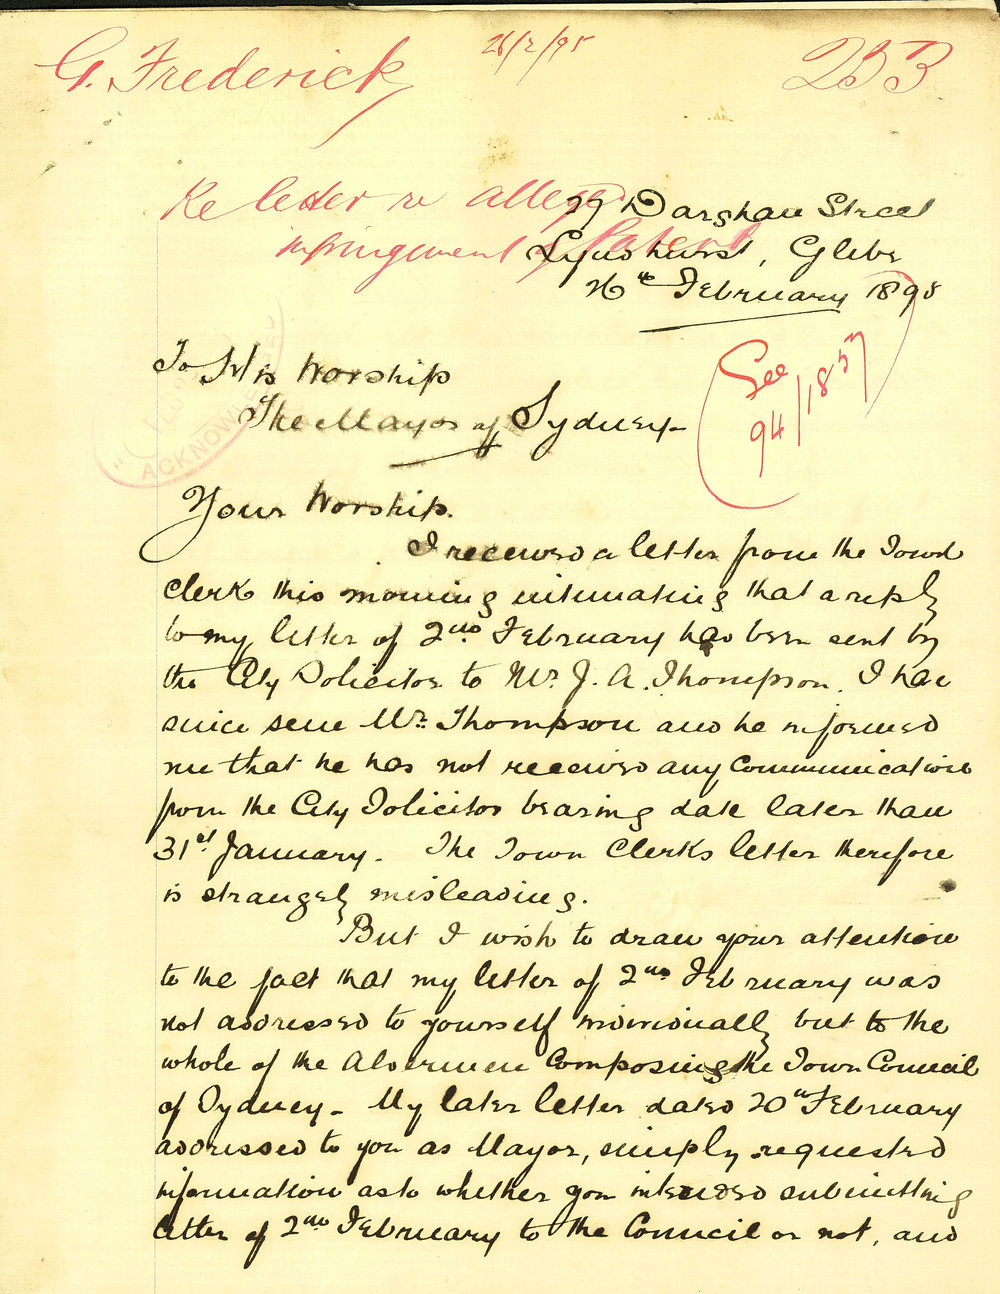 G. Frederick
26/2/95
253
Re letter re alleged
infringement of Patent
29 Darghan Street
Lyndhurst, Glebe
26th February 1895
See
94/1857
ACKNOWLEDGED
To His Worship
The Mayor of Sydney -
Your Worship.
I received a letter from the Town
Clerk this morning intimating that a reply
to my letter of 2nd February has been sent by
the City Solicitor to Mr. J. A. Thompson. I have
since seen Mr. Thompson and he informed
me that he has not received any communication
from the City Solicitor bearing date later than
31st January. The Town Clerks letter therefore
is strangely misleading.
But I wish to draw your attention
to the fact that my letter of 2nd February was
not addressed to yourself individually but to the
whole of the Aldermen composing the Town Council
of Sydney - My later letter dated 20th February
addressed to you as Mayor, simply requested
information as to whether you intended submitting
letter of 2nd February to the Council or not, and